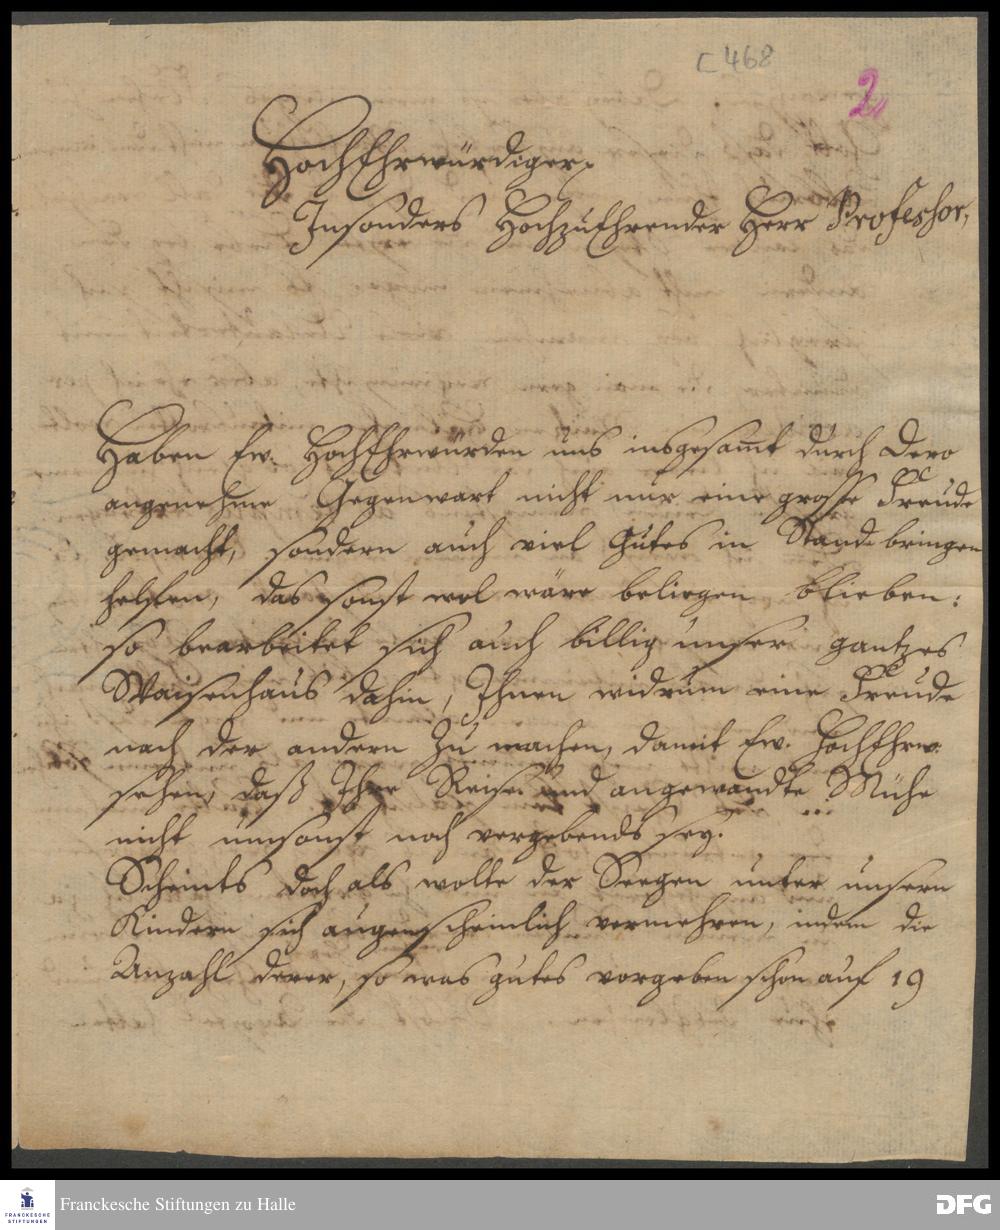 C 468
2
HochEhrwürdiger,
Insonders HochzuEhrender Herr Professor,
Haben Ew. HochEhrwürden uns insgesamt durch Dero
angenehme Gegenwart nicht nur eine grosse Freude
gemacht, sondern auch viel Gutes in Stand bringen
helffen, das sonst wol wäre beliegen blieben:
so bearbeitet sich auch billig unser gantzes
Waisenhaus dahin, Ihnen widrum eine Freude
nach der andern zu machen, damit Ew. HochEhrw.
sehen, daß Ihre Reise und angewandte Mühe
nicht umsonst noch vergebends sey.
Scheints doch als wolte der Seegen unter unsern
Kindern sich augenscheinlich vermehren, indem die
Anzahl derer, so was gutes vorgeben schon auf 19
FRANCKESCHE
STIFTUNGEN
Franckesche Stiftungen zu Halle
DFG